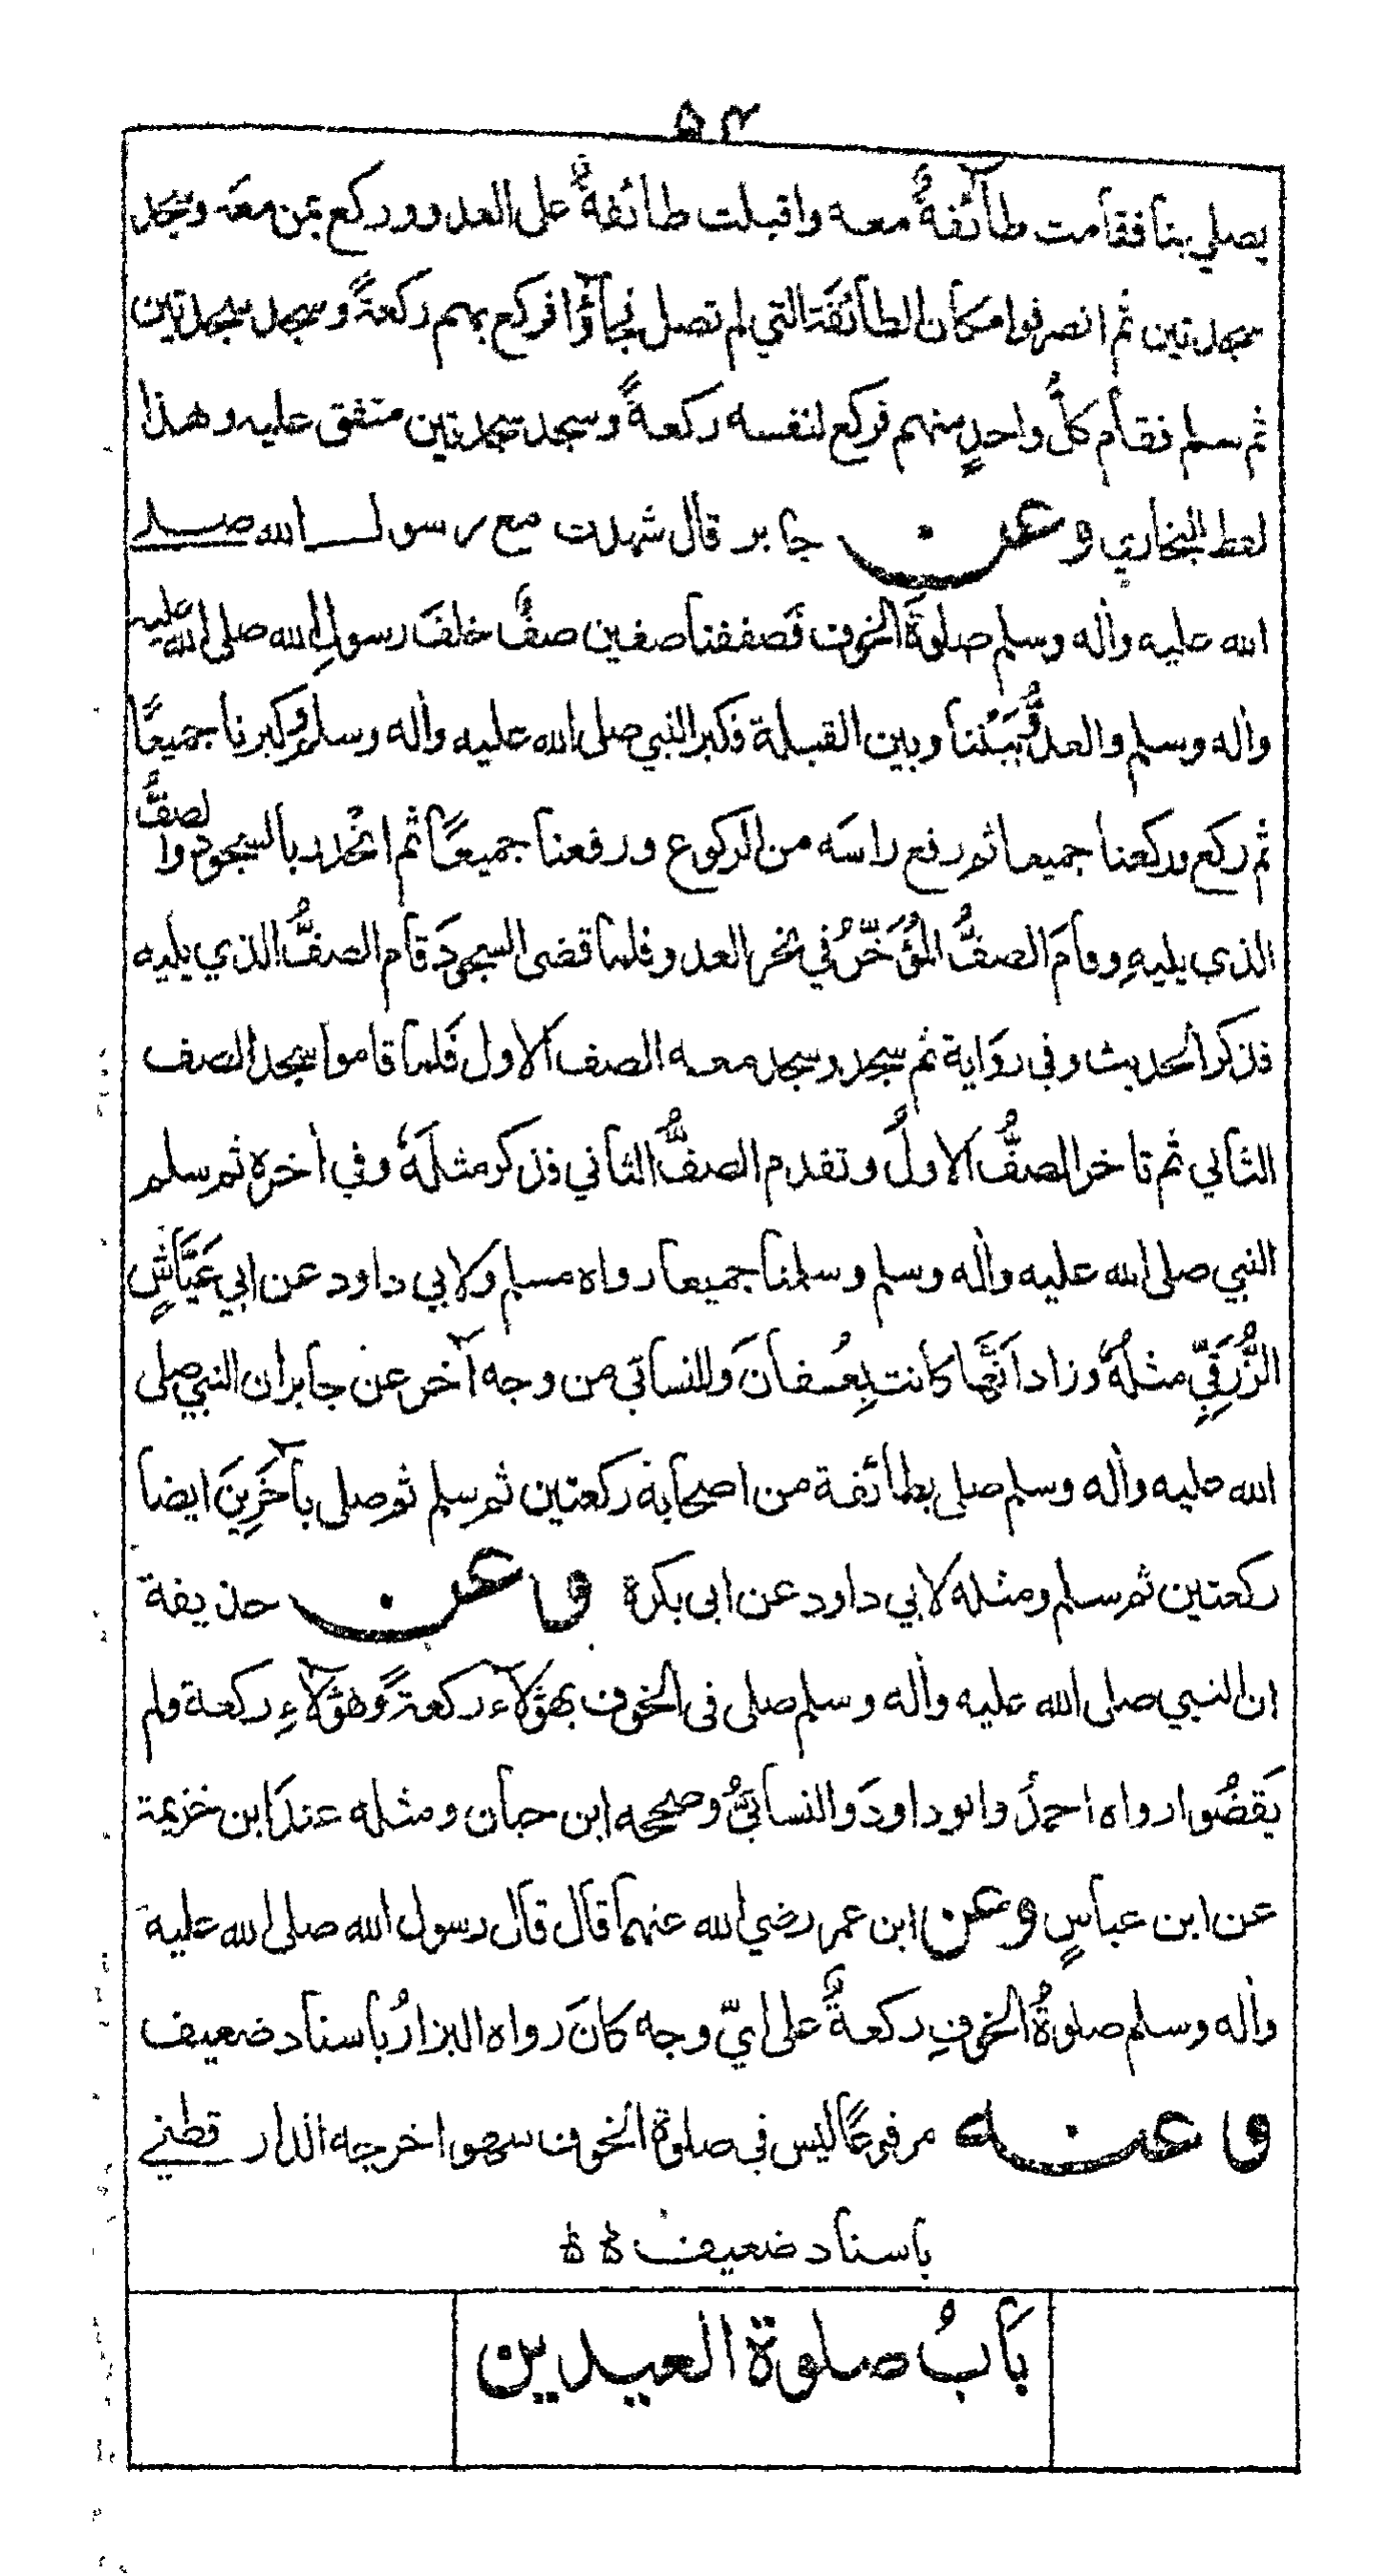 ٥٣
يصلي بنا فقامت طآئفةٌ معه واقبلت طائفةٌ على العدو وركع بمن معَه وسجد
سجدتين ثم انصرفوا مكان الطائفَة التي لم تصل فجآؤا فركع بهم ركعةً وسجد سجدتين
ثم سلم فقام كلُّ واحدٍ منهم فركع لنفسه ركعةً وسجد سجدتين متفق عليه وهذا
لفظ البخاري وعن جابر قال شهدت مع رسول الله صلى
الله عليه واٰله وسلم صلوةَ الخوف فَصففنا صفين صفٌّ خلفَ رسولِ الله صلى الله عليه
واٰله وسلم والعدوُّ بَيْننا وبين القبلة فكبر النبي صلى الله عليه واٰله وسلم وكبرنا جميعًا
ثم ركع وركعنا جميعا ثم رفع راسَه من الركوع ورفعنا جميعًا ثم انحْدر بالسجود والصفُّ
الذي يليهِ وقامَ الصفُّ المُؤَخَّرُ في نحر العدو فلما قضى السجودَ قام الصفُّ الذي يليه
فذكر الحديث وفي روَاية ثم سجد وسجد معه الصف الاول فَلما قاموا سجد الصف
الثاني ثم تاخر الصفُّ الاولُ وتقدم الصفُّ الثاني فذكر مثلَهٗ وفي اٰخره ثم سلم
النبي صلى الله عليه واٰله وسلم وسلمنا جميعا رواه مسلم ولابي داود عن ابي عَيَّاشٍ
الزُّرَقِيِّ مثلُهٗ وزاد اَنَّها كانت بِعُسفانَ وللنسائي من وجه آخر عن جابر ان النبي صلى
الله عليه واٰله وسلم صلى بطائفة من اصحابه ركعتين ثم سلم ثم صلى بآخَرِينَ ايضا
ركعتين ثم سلم ومثله لابي داود عن ابي بكرة وعن حذيفة
ان النبي صلى الله عليه واٰله وسلم صلى في الخوف بهؤلآء ركعةً وهؤلآءِ ركعة ولم
يَقضُوا رواه احمدُ وابو داودَ والنسائيُّ وصححه ابن حبان ومثله عندَ ابن خزيمة
عن ابن عباسٍ وعن ابن عمر رضي الله عنهما قال قال رسول الله صلى الله عليه
واٰله وسلم صلوةُ الخوفِ ركعةٌ على ايّ وجه كانَ رواه البزارُ باسناد ضعيف
وعنه مرفوعًا ليس في صلوة الخوف سهو اخرجه الدارقطني
باسناد ضعيف ۵ ۵
بَابُ صلوة العيدين